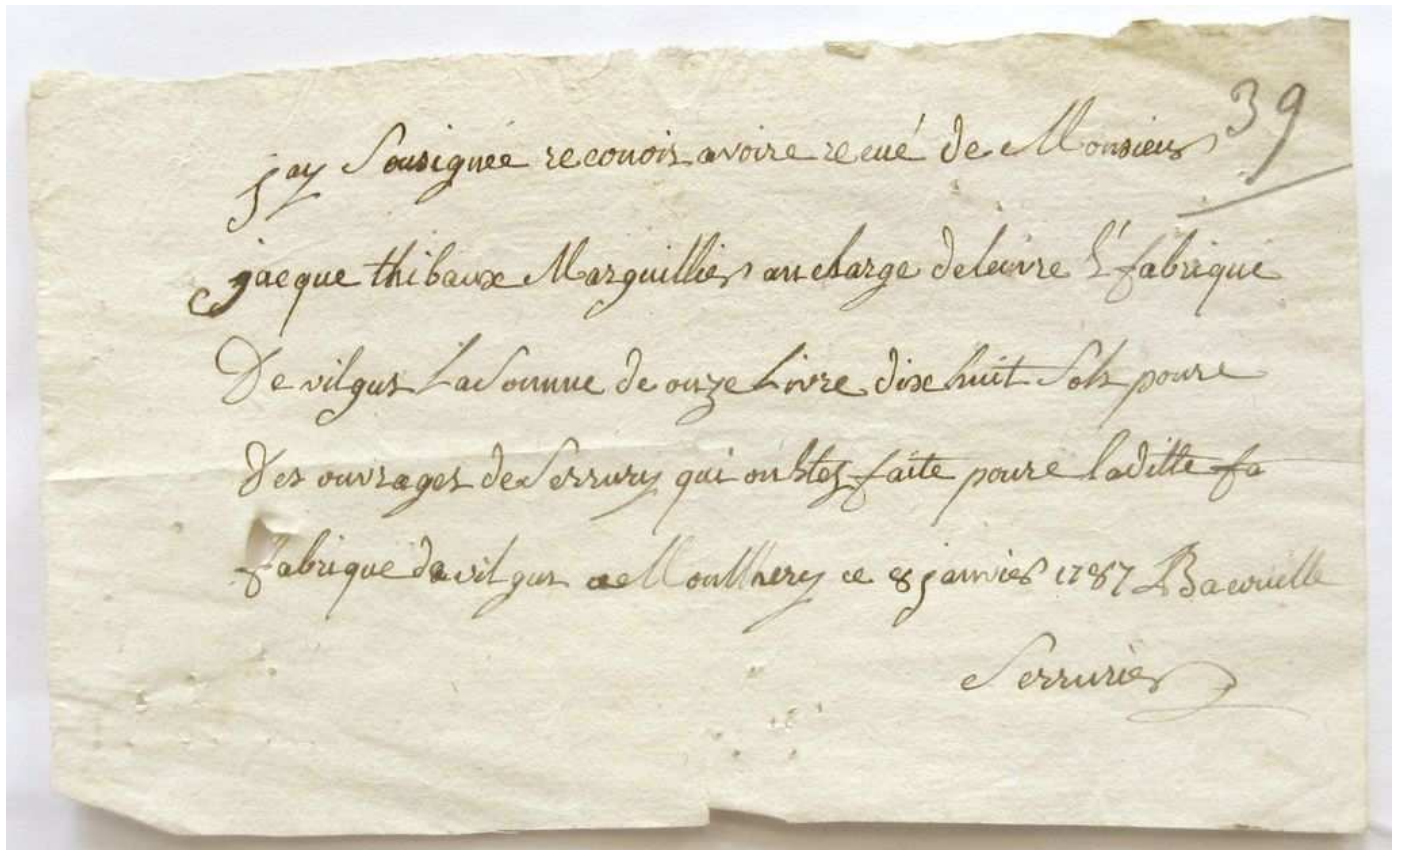 39
jay Sousignée reconois avoire recué de Monsieur
jacque thibaux Marguillier an charge de leuvre & fabrique
De vilgus La Somme de onze Livre dix huit Sols poure
Des ouvrages de Serrury qui on Étez faite poure laditte fa
fabrique de vilgus a Montlhery ce 8 janvier 1787
Serrurier